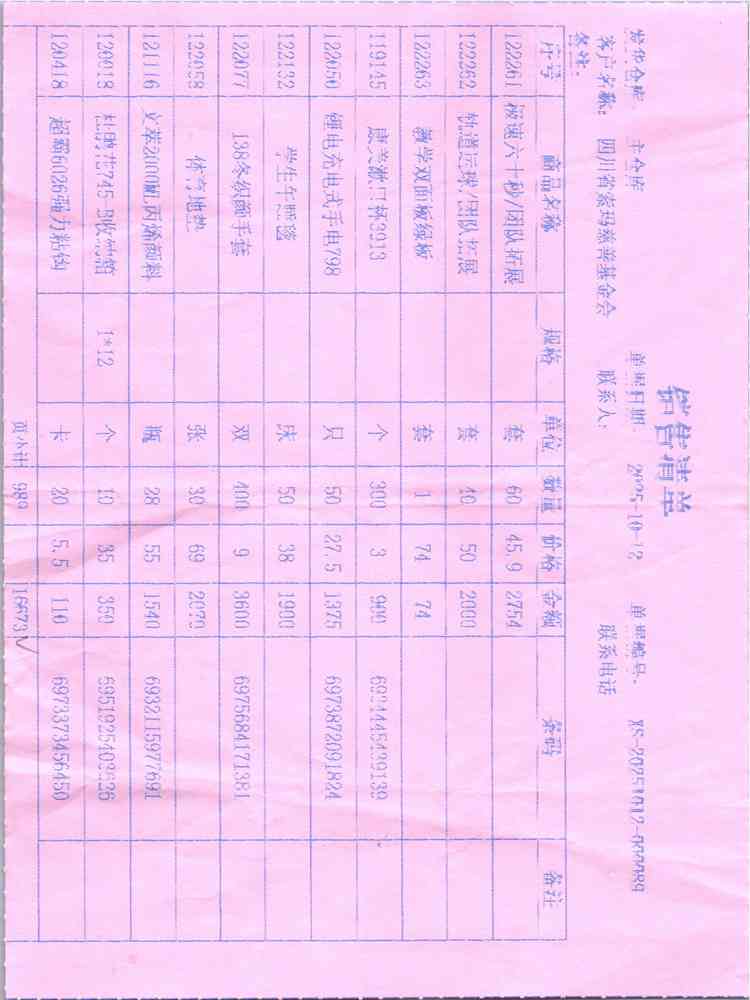 销售清单
发货仓库: 主仓库 单据日期: 2025-10-12 单据编号: XS-20251012-000089
客户名称: 四川省索玛慈善基金会 联系人: 联系电话
备注:
序号 商品名称 规格 单位 数量 价格 金额 条码 备注
122261 极速六十秒/团队拓展 套 60 45.9 2754
122262 轨道运球/团队拓展 套 40 50 2000
122263 教学双面板绿板 套 1 74 74
119145 康美漱口杯3913 个 300 3 900
122050 锂电充电式手电798 只 50 27.5 1375 6973872091824
122132 学生午睡毯 床 50 38 1900
122077 138条织颜手套 双 400 9 3600 6975684171381
122058 体育地垫 张 30 69 2070
121116 文萃2000ML丙烯颜料 瓶 28 55 1540 6932115977691
120018 杜鹃花745-B收纳箱 1*12 个 10 35 350
120418 超霸6026强力粘钩 卡 20 5.5 110 6973373456450
页小计 989 16673